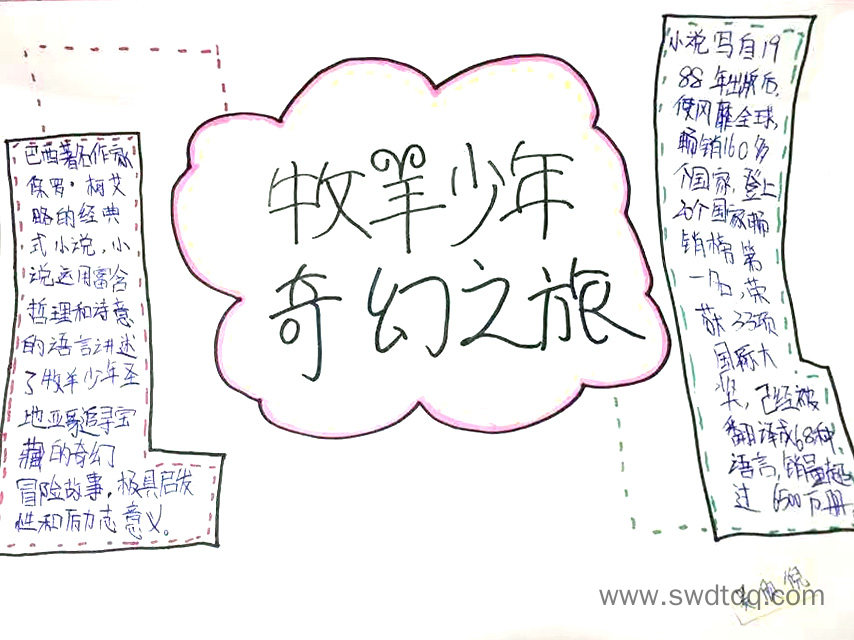 牧羊少年
奇幻之旅
巴西著名作家
保罗·柯艾
略的经典
式小说,小
说运用富含
哲理和诗意
的语言讲述
了牧羊少年圣
地亚哥追寻宝
藏的奇幻
冒险故事,极具启发
性和励志意义。
小说写自19
88年出版后,
便风靡全球,
畅销160多
个国家,登上
20个国家畅
销榜第
一名,荣
获33项
国际大
奖,已经被
翻译成68种
语言,销量超
过6500万册,
www.swdtdq.com